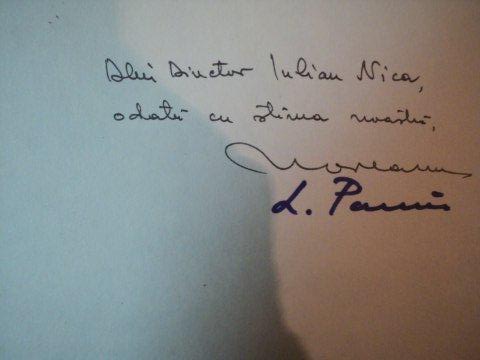 Dlui Director Iulian Nica,
odată cu stima noastră,
L.